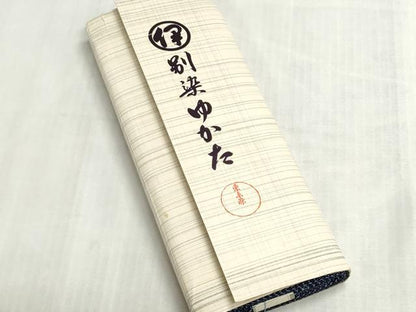 伊
別染ゆかた